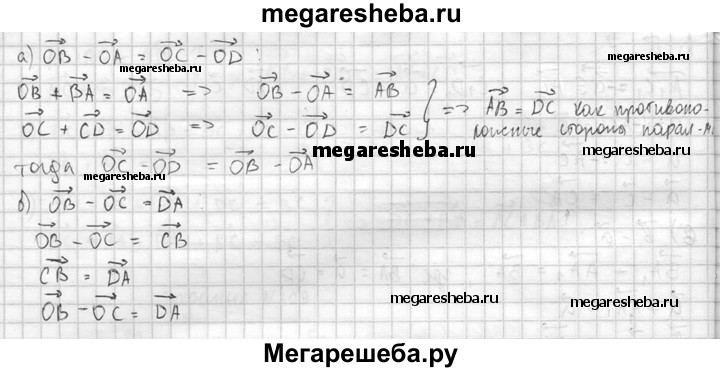 megaresheba.ru
а) OB⃗ - OA⃗ = OC⃗ - OD⃗ :
megaresheba.ru megaresheba.ru
OB⃗ + BA⃗ = OA⃗ => OB⃗ - OA⃗ = AB⃗
OC⃗ + CD⃗ = OD⃗ => OC⃗ - OD⃗ = DC⃗ } => AB⃗ = DC⃗ как противопо-
ложные стороны парал-м.
megaresheba.ru
тогда OC⃗ - OD⃗ = OB⃗ - OA⃗
megaresheba.ru
б) OB⃗ - OC⃗ = DA⃗ :
OB⃗ - OC⃗ = CB⃗
CB⃗ = DA⃗
OB⃗ - OC⃗ = DA⃗
megaresheba.ru megaresheba.ru
Мегарешеба.ру